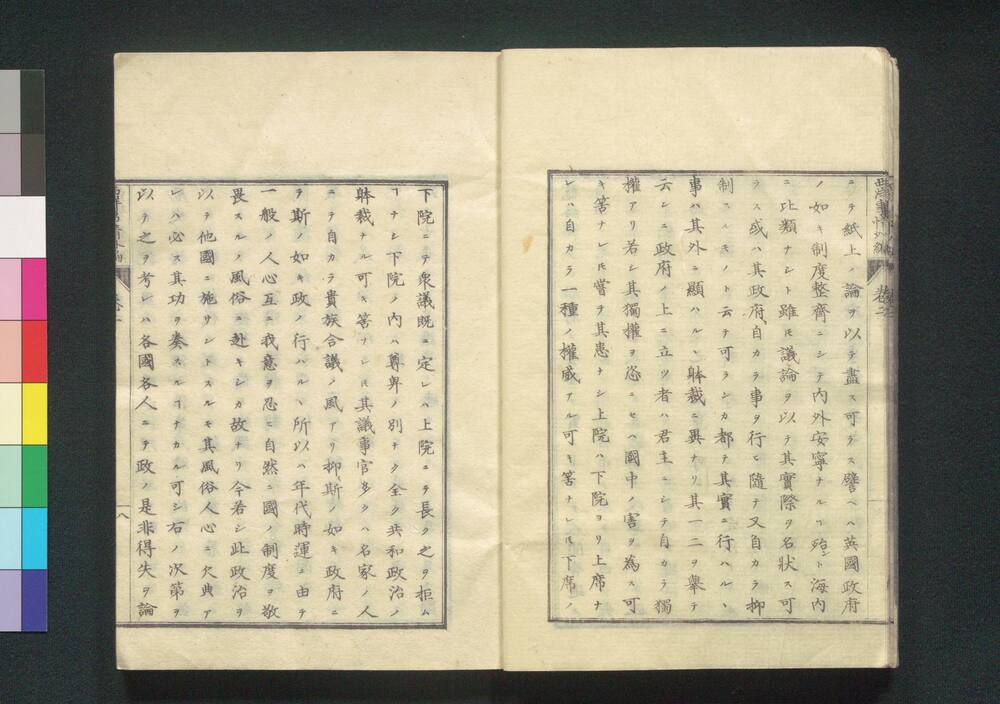 ニテ紙上ノ論ヲ以テ盡ス可ラス譬ヘハ英國政府
ノ如キ制度整齊ニシテ内外安寧ナルヿ殆ント海内
ニ比類ナシト雖𪜈議論ヲ以テ其實際ヲ名狀ス可
ラス或ハ其政府自カラ事ヲ行ヒ隨テ又自カラ抑
制スルモノト云テ可ランカ都テ其實ニ行ハルヽ
事ハ其外ニ顯ハルヽ躰裁ニ異ナリ其一二ヲ擧テ
云ンニ政府ノ上ニ立ツ者ハ君主ニシテ自カラ獨
權アリ若シ其獨權ヲ恣ニセハ國中ノ害ヲ為ス可
キ筈ナレ𪜈嘗テ其患ナシ上院ハ下院ヨリ上席ナ
レハ自カラ一種ノ權威アル可キ筈ナレ𪜈下席ノ
下院ニテ衆議既ニ定レハ上院ニテ長ク之ヲ拒ム
ヿナシ下院ノ内ハ尊卑ノ別ナク全ク共和政治ノ
躰裁ナル可キ筈ナレ𪜈其議事官多クハ名家ノ人
ニテ自カラ貴族合議ノ風アリ抑斯ノ如キ政府ニ
テ斯ノ如キ政ノ行ハルヽ所以ハ年代時運ニ由テ
一般ノ人心互ニ我意ヲ忍ヒ自然ニ國ノ制度ヲ敬
畏スルノ風俗ニ赴キシカ故ナリ今若シ此政治ヲ
以テ他國ニ施サントスルモ其風俗人心ニ欠典ア
レハ必ス其功ヲ奏スルヿナカル可シ右ノ次第ヲ
以テ之ヲ考レハ各國各人ニテ政ノ是非得失ヲ論
卷之二
十八